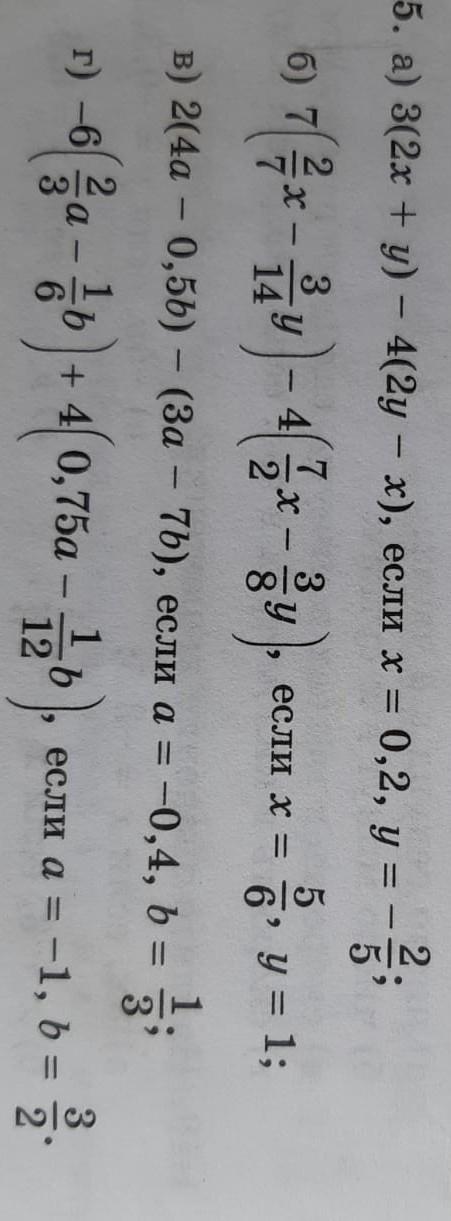 5. а) 3(2x + y) − 4(2y − x), если x = 0,2, y = −2/5;
б) 7(2/7 x − 3/14 y) − 4(7/2 x − 3/8 y), если x = 5/6, y = 1;
в) 2(4a − 0,5b) − (3a − 7b), если a = −0,4, b = 1/3;
г) −6(2/3 a − 1/6 b) + 4(0,75a − 1/12 b), если a = −1, b = 3/2.